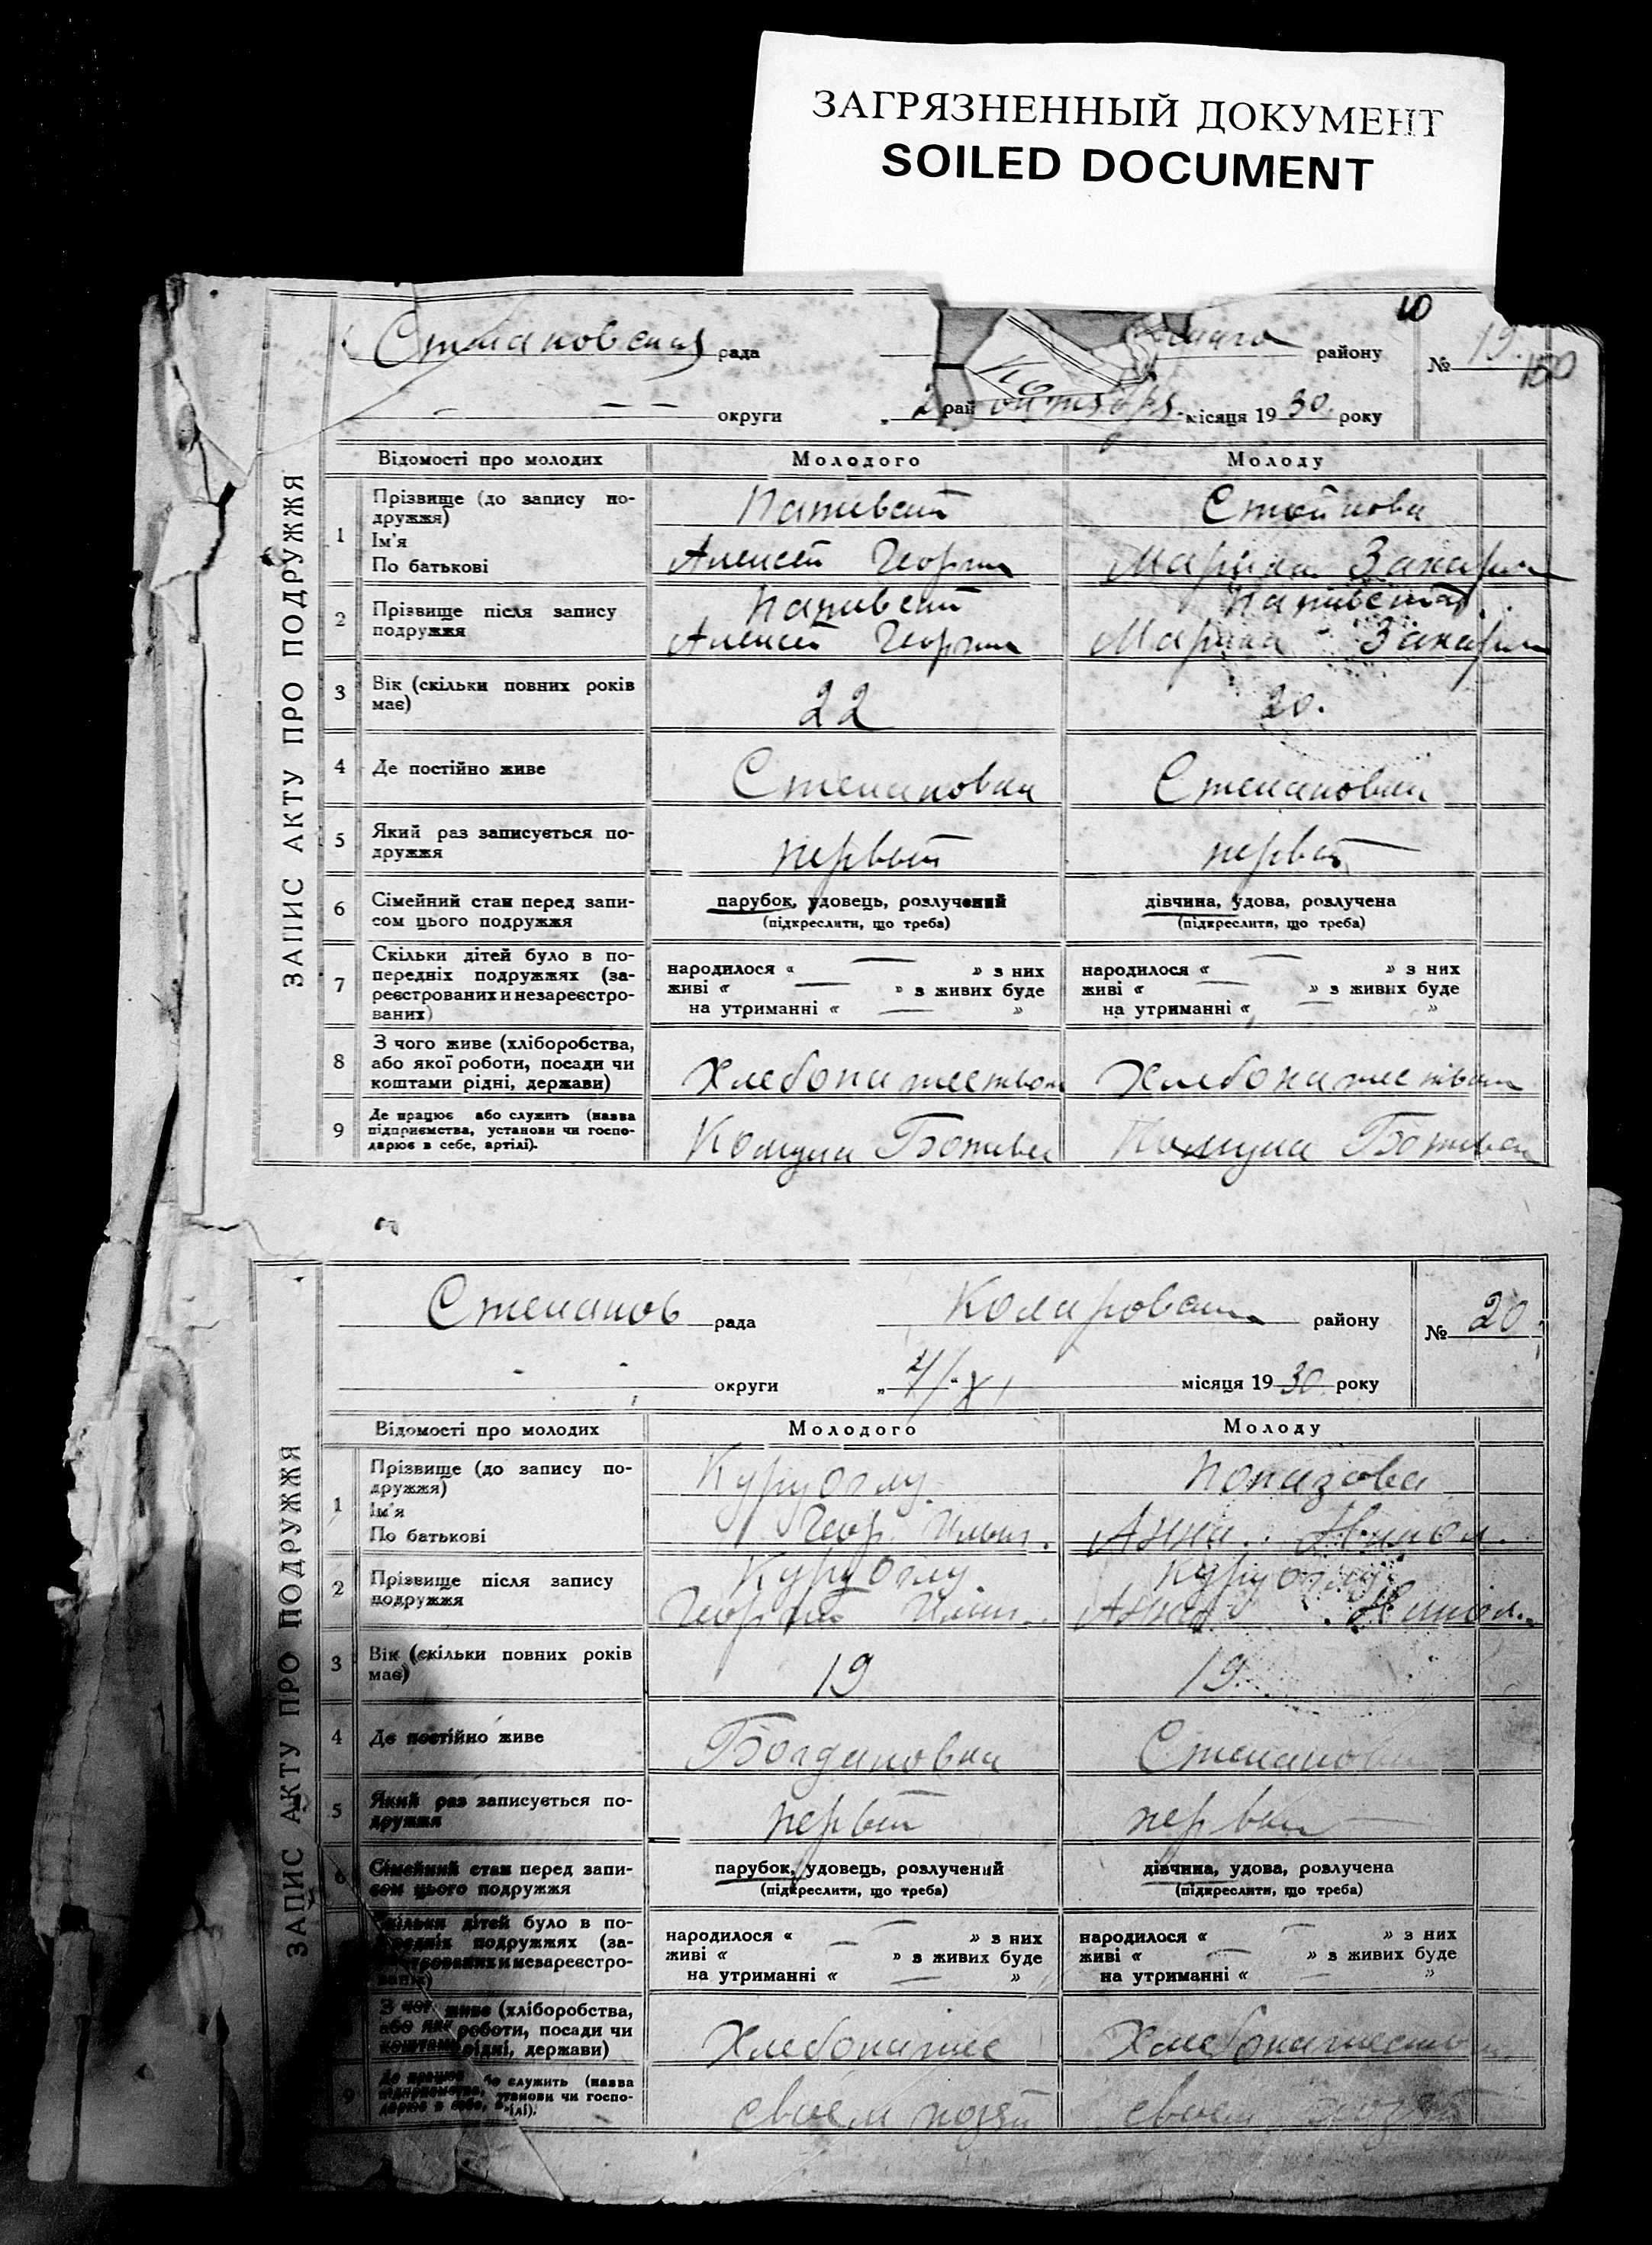 ЗАГРЯЗНЕННЫЙ ДОКУМЕНТ
SOILED DOCUMENT
10
ЗАПИС АКТУ ПРО ПОДРУЖЖЯ
рада району № 19.
150
округи „ 2 рай октября місяця 19 30 року
Відомості про молодих Молодого Молоду
1 Прізвище (до запису по-
дружжя)
Стойнова
Ім'я
По батькові
Алексей Георги Мария Захари
2 Прізвище після запису
подружжя
Алексей Георги Захари
3 Вік (скільки повних років
має)
22 20.
4 Де постійно живе Степановка Степановка
5 Який раз записується по-
дружжя
первый
6 Сімейний стан перед запи-
сом цього подружжя
парубок, удовець, розлучений
(підкреслити, що треба)
дівчина, удова, розлучена
(підкреслити, що треба)
7 Скільки дітей було в по-
передніх подружжях (за-
реєстрованих и незареєстро-
ваних)
народилося « — » з них
живі « — » з живих буде
на утриманні « — »
народилося « — » з них
живі « — » з живих буде
на утриманні « — »
8 З чого живе (хліборобства,
або якої роботи, посади чи
коштами рідні, держави)
Хлебопашеством Хлебопашеством
9 Де працює або служить (назва
підприємства, установи чи госпо-
дарює в себе, артілі).
Комуна Ботева Комуна Ботева
ЗАПИС АКТУ ПРО ПОДРУЖЖЯ
Степанов рада Коларовского району № 20
округи місяця 19 30 року
Відомості про молодих Молодого Молоду
1 Прізвище (до запису по-
дружжя)
Куруоглу Попазова
Ім'я
По батькові
Геор. Ильич. Анна Никол.
2 Прізвище після запису
подружжя
Куруоглу Куруоглу
Георгий Ильич. Анна Никол.
3 Вік (скільки повних років
має)
19 19.
4 Де постійно живе Богдановка Степановка
5 Який раз записується по-
дружжя
первый
6 Сімейний стан перед запи-
сом цього подружжя
парубок, удовець, розлучений
(підкреслити, що треба)
дівчина, удова, розлучена
(підкреслити, що треба)
Скільки дітей було в по-
передніх подружжях (за-
реєстрованих и незареєстро-
ваних)
народилося « — » з них
живі « — » з живих буде
на утриманні « — »
народилося « — » з них
живі « — » з живих буде
на утриманні « — »
З чого живе (хліборобства,
або якої роботи, посади чи
коштами рідні, держави)
Хлебопашес Хлебопашеством
9 Де працює або служить (назва
підприємства, установи чи госпо-
дарює в себе, артілі).
своем хозяй своем хозяй